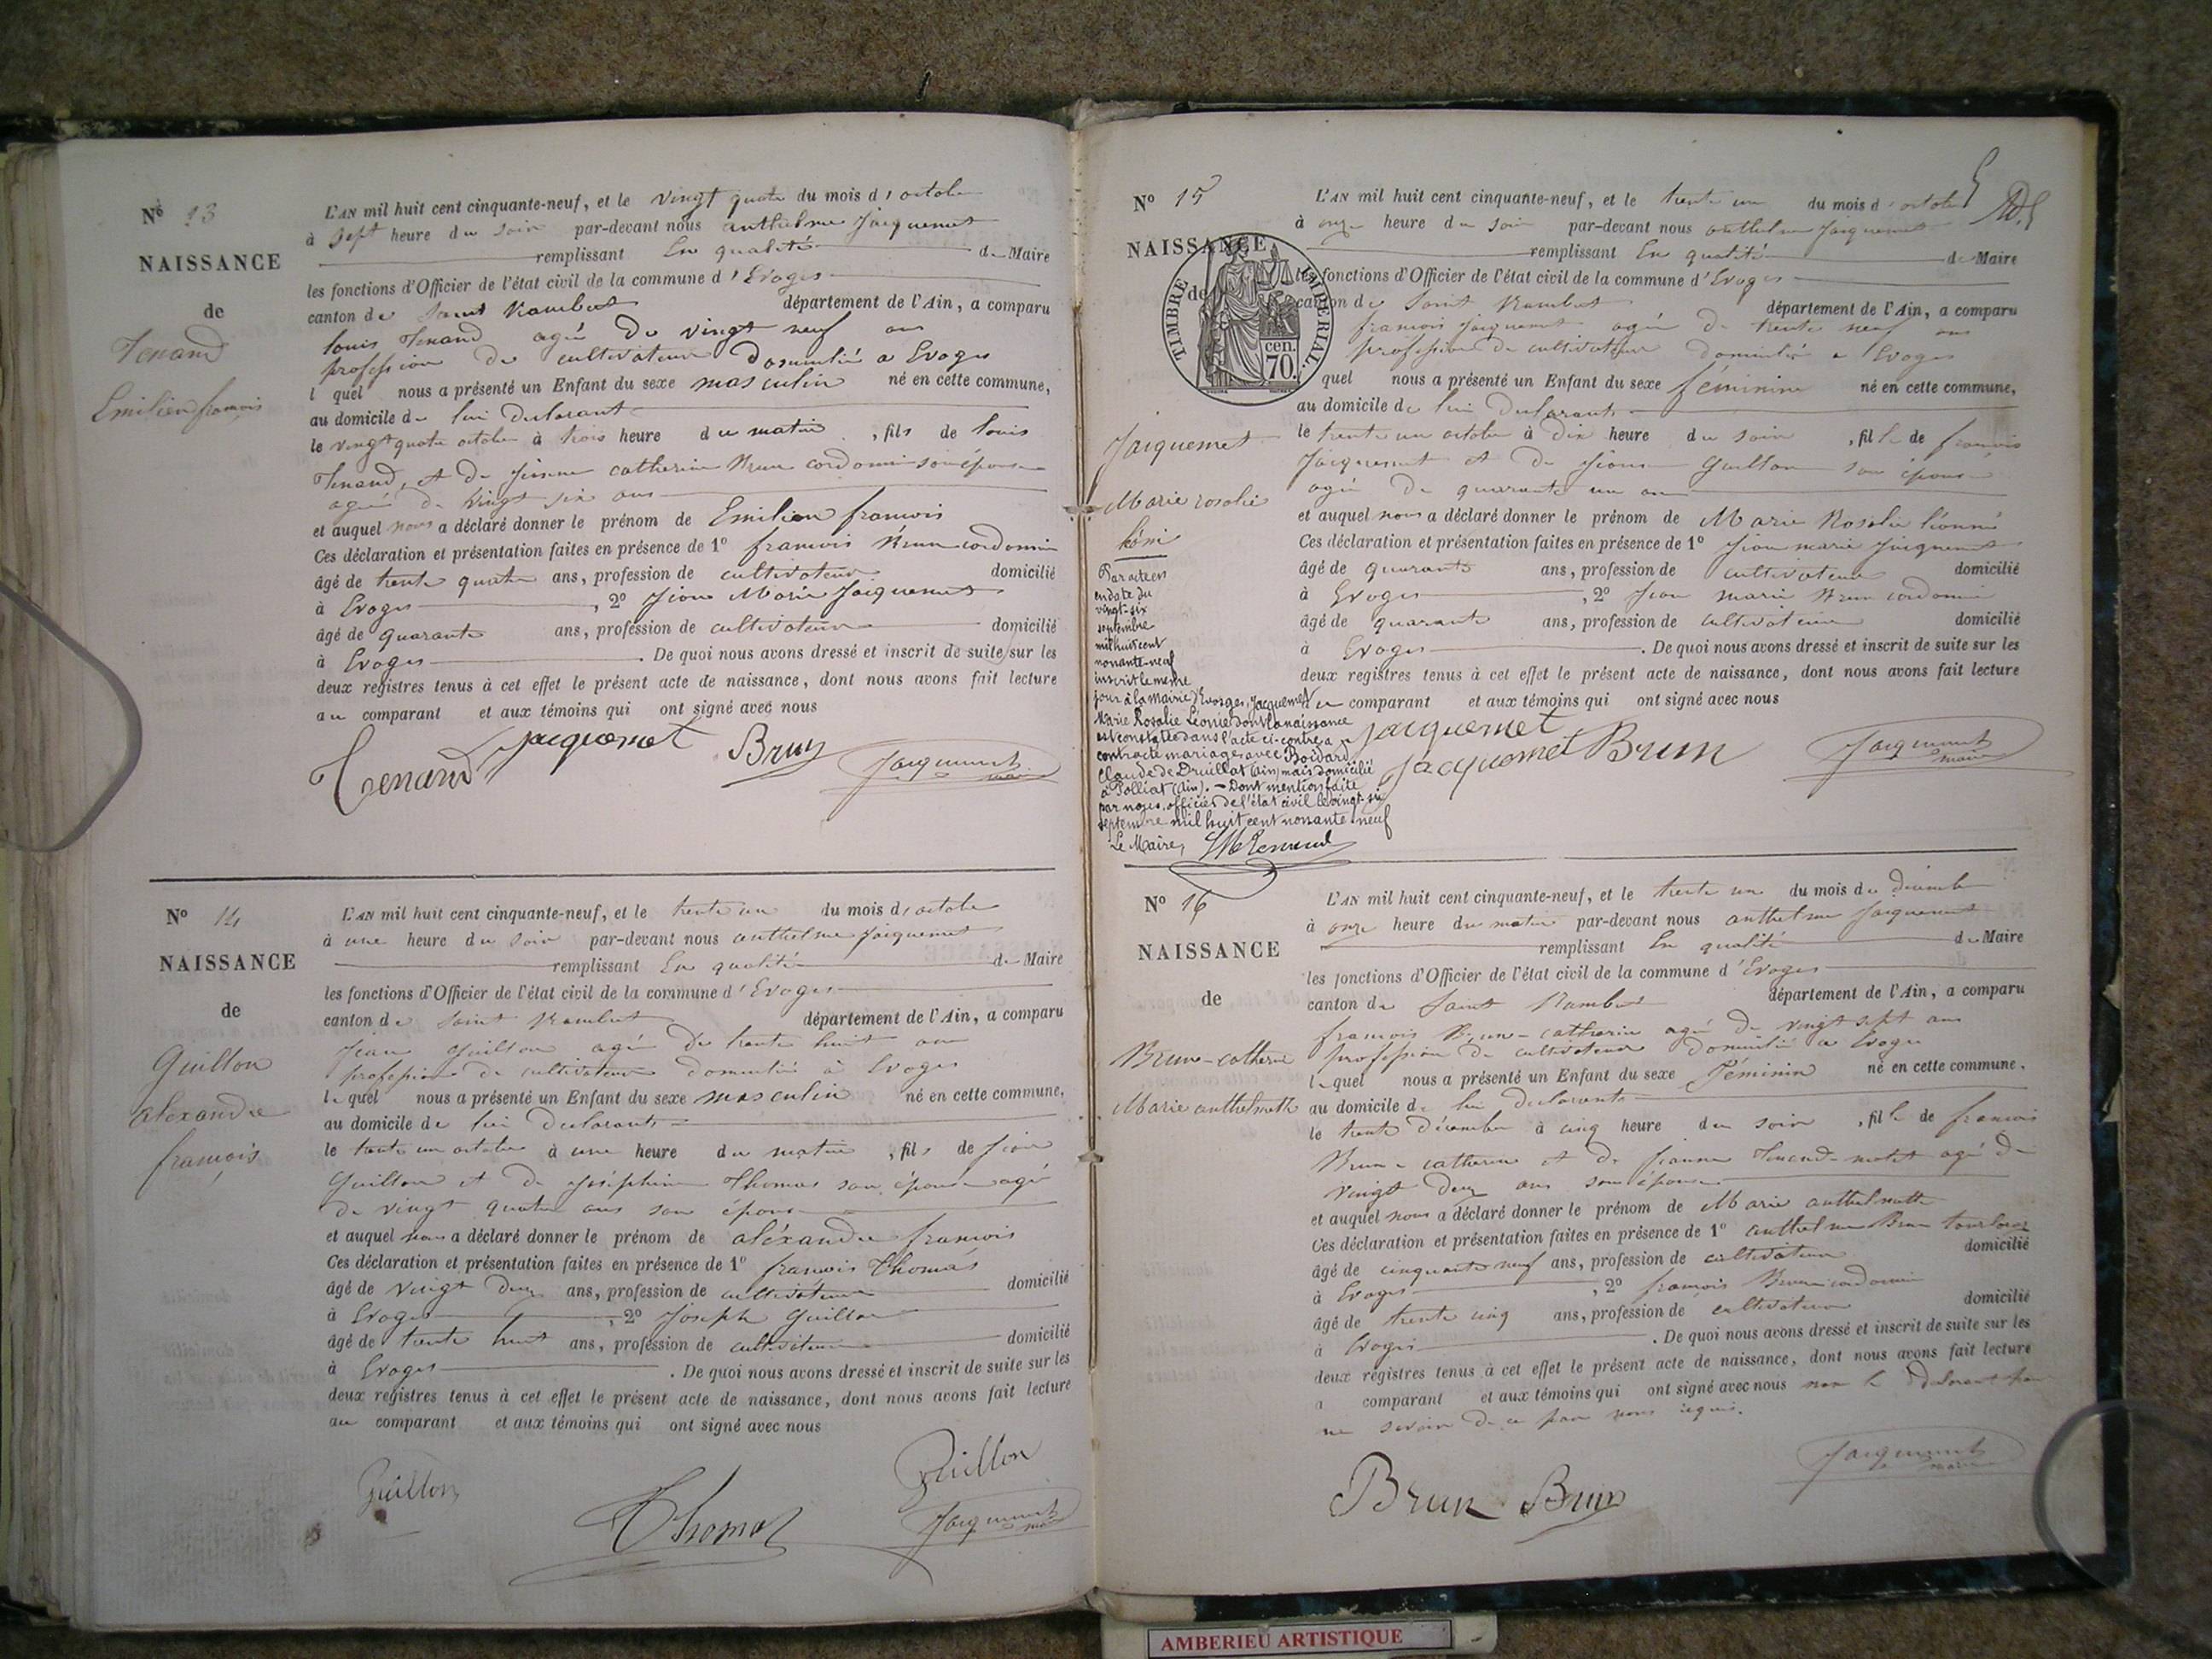 Nº 13
NAISSANCE
de
Tenand
Emilien françois
L'AN mil huit cent cinquante-neuf, et le vingt quatre du mois d'octobre
à sept heure du soir par-devant nous anthelme Jacquemet
remplissant En qualité de Maire
les fonctions d'Officier de l'état civil de la commune d'Evoges
canton de Saint Rambert département de l'Ain, a comparu
louis Tenand agé de vingt neuf ans
profession de cultivateur domicilié a Evoges
l quel nous a présenté un Enfant du sexe masculin né en cette commune,
au domicile de lui declarant
le vingt quatre octobre à trois heure du matin, fils de louis
Tenand, et de Jeanne catherine Brun cordonnier son épouse
agée de vingt six ans
et auquel nous a déclaré donner le prénom de Emilien françois
Ces déclaration et présentation faites en présence de 1º françois Brun cordonnier
âgé de trente quatre ans, profession de cultivateur domicilié
à Evoges, 2º Jean Marie Jacquemet
âgé de quarante ans, profession de cultivateur domicilié
à Evoges. De quoi nous avons dressé et inscrit de suite sur les
deux registres tenus à cet effet le présent acte de naissance, dont nous avons fait lecture
au comparant et aux témoins qui ont signé avec nous
Tenand Jacquemet Brun Jacquemet
maire
Nº 14
NAISSANCE
de
Guillon
alexandre
françois
L'AN mil huit cent cinquante-neuf, et le trente un du mois d'octobre
à une heure du soir par-devant nous anthelme Jacquemet
remplissant En qualité de Maire
les fonctions d'Officier de l'état civil de la commune d'Evoges
canton de Saint Rambert département de l'Ain, a comparu
Jean Guillon agé de trente huit ans
profession de cultivateur domicilié à Evoges
le quel nous a présenté un Enfant du sexe masculin né en cette commune,
au domicile de lui declarant
le trente un octobre à une heure du matin, fils de Jean
Guillon et de Joséphine Thomas son épouse agé
de vingt quatre ans son épouse
et auquel nous a déclaré donner le prénom de aléxandre françois
Ces déclaration et présentation faites en présence de 1º françois Thomas
âgé de vingt deux ans, profession de cultivateur domicilié
à Evoges, 2º Joseph Guillon
âgé de trente huit ans, profession de cultivateur domicilié
à Evoges. De quoi nous avons dressé et inscrit de suite sur les
deux registres tenus à cet effet le présent acte de naissance, dont nous avons fait lecture
au comparant et aux témoins qui ont signé avec nous
Guillon Thomas Guillon
Jacquemet
maire
Nº 15
NAISSANCE
de
TIMBRE IMPERIAL.
cen.
70.
Jacquemet
Marie rosalie
L'AN mil huit cent cinquante-neuf, et le trente un du mois d'octobre
à onze heure du soir par-devant nous anthelme Jacquemet
remplissant En qualité de Maire
les fonctions d'Officier de l'état civil de la commune d'Evoges
canton de Saint Rambert département de l'Ain, a comparu
françois Jacquemet agé de trente neuf ans
profession de cultivateur domicilié a Evoges
quel nous a présenté un Enfant du sexe féminin né en cette commune,
au domicile de lui declarant
le trente un octobre à dix heure du soir, fille de françois
Jacquemet et de Jeanne Guillon son épouse
agée de quarante un ans
et auquel nous a déclaré donner le prénom de Marie Rosalie léonnie
Ces déclaration et présentation faites en présence de 1º Jean marie Jacquemet
âgé de quarante ans, profession de cultivateur domicilié
à Evoges, 2º Jean marie Brun cordonnier
âgé de quarante ans, profession de cultivateur domicilié
à Evoges. De quoi nous avons dressé et inscrit de suite sur les
deux registres tenus à cet effet le présent acte de naissance, dont nous avons fait lecture
au comparant et aux témoins qui ont signé avec nous
Jacquemet
Jacquemet Brun Jacquemet
maire
Par acte en
en date du
vingt-six
septembre
mil huit cent
nonante-neuf
inscrit le même
jour à la mairie d'Evosges, Jacquemet
Marie Rosalie Léonie dont la naissance
est constatée dans l'acte ci-contre a
contracté mariage avec Boidard
Claude de Druillat (Ain) mais domicilié
à Polliat (Ain). - Dont mention faite
par nous, officier de l'état civil le vingt-six
septembre mil huit cent nonante-neuf
Le Maire,
Nº 16
NAISSANCE
de
Brun-catherin
Marie anthelmette
L'AN mil huit cent cinquante-neuf, et le trente un du mois de décembre
à onze heure du matin par-devant nous anthelme Jacquemet
remplissant En qualité de Maire
les fonctions d'Officier de l'état civil de la commune d'Evoges
canton de Saint Rambert département de l'Ain, a comparu
françois Brun-catherin agé de vingt sept ans
profession de cultivateur domicilié a Evoges
le quel nous a présenté un Enfant du sexe féminin né en cette commune,
au domicile de lui declarant
le trente décembre à cinq heure du soir, fille de françois
Brun-catherin et de Jeanne Tenand-motet agé de
vingt deux ans son épouse
et auquel nous a déclaré donner le prénom de Marie anthelmette
Ces déclaration et présentation faites en présence de 1º anthelme Brun
âgé de cinquante neuf ans, profession de cultivateur domicilié
à Evoges, 2º françois Brun cordonnier
âgé de trente cinq ans, profession de cultivateur domicilié
à Evoges. De quoi nous avons dressé et inscrit de suite sur les
deux registres tenus à cet effet le présent acte de naissance, dont nous avons fait lecture
a comparant et aux témoins qui ont signé avec nous non le declarant pour
ne savoir de ce par nous requis.
Brun Brun Jacquemet
maire
AMBERIEU ARTISTIQUE